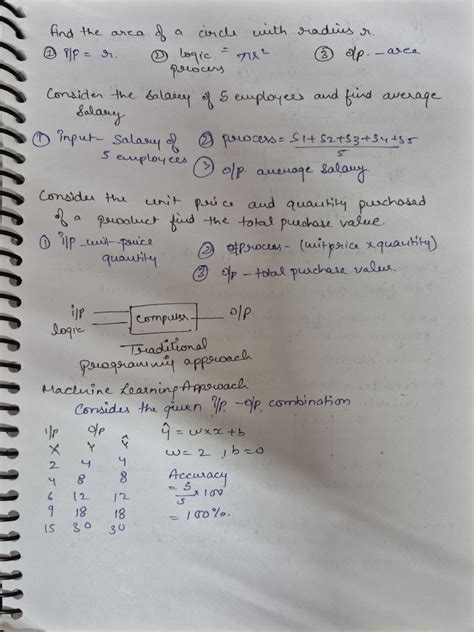 Find the area of a circle with radius r.
① i/p = r. ② logic process = πr² ③ o/p. - area
Consider the salary of 5 employees and find average
salary
① Input - Salary of 5 employees ② process = S1+S2+S3+S4+S5 / 5
③ o/p average salary
Consider the unit price and quantity purchased
of a product find the total purchase value
① i/p - unit-price quantity ② process - (unit price x quantity)
③ o/p - total purchase value.
i/p
logic computer o/p.
Traditional
programming approach
Machine Learning Approach
Consider the given i/p - o/p combination
i/p o/p ŷ = w x x + b
X Y Ŷ w = 2, b = 0
2 4 4
4 8 8 Accuracy
6 12 12 = 5/5 x 100
9 18 18 = 100%.
15 30 30